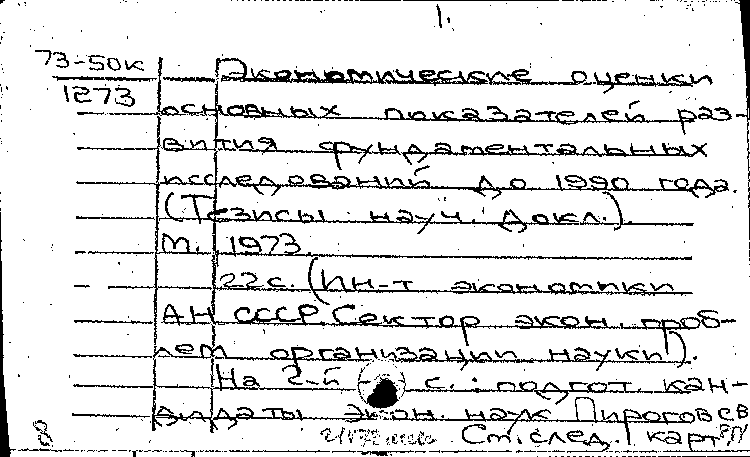 1.
73-50к
1273
Экономические оценки
основных показателей раз-
вития фундаментальных
исследований до 1990 года.
(Тезисы науч. докл.).
М. 1973.
22 с. (Ин-т экономики
АН СССР. Сектор экон. проб-
лем организации науки).
На 2-й с.: подгот. кан-
дидаты экон. наук Пирогов С В
8 См. след. карт